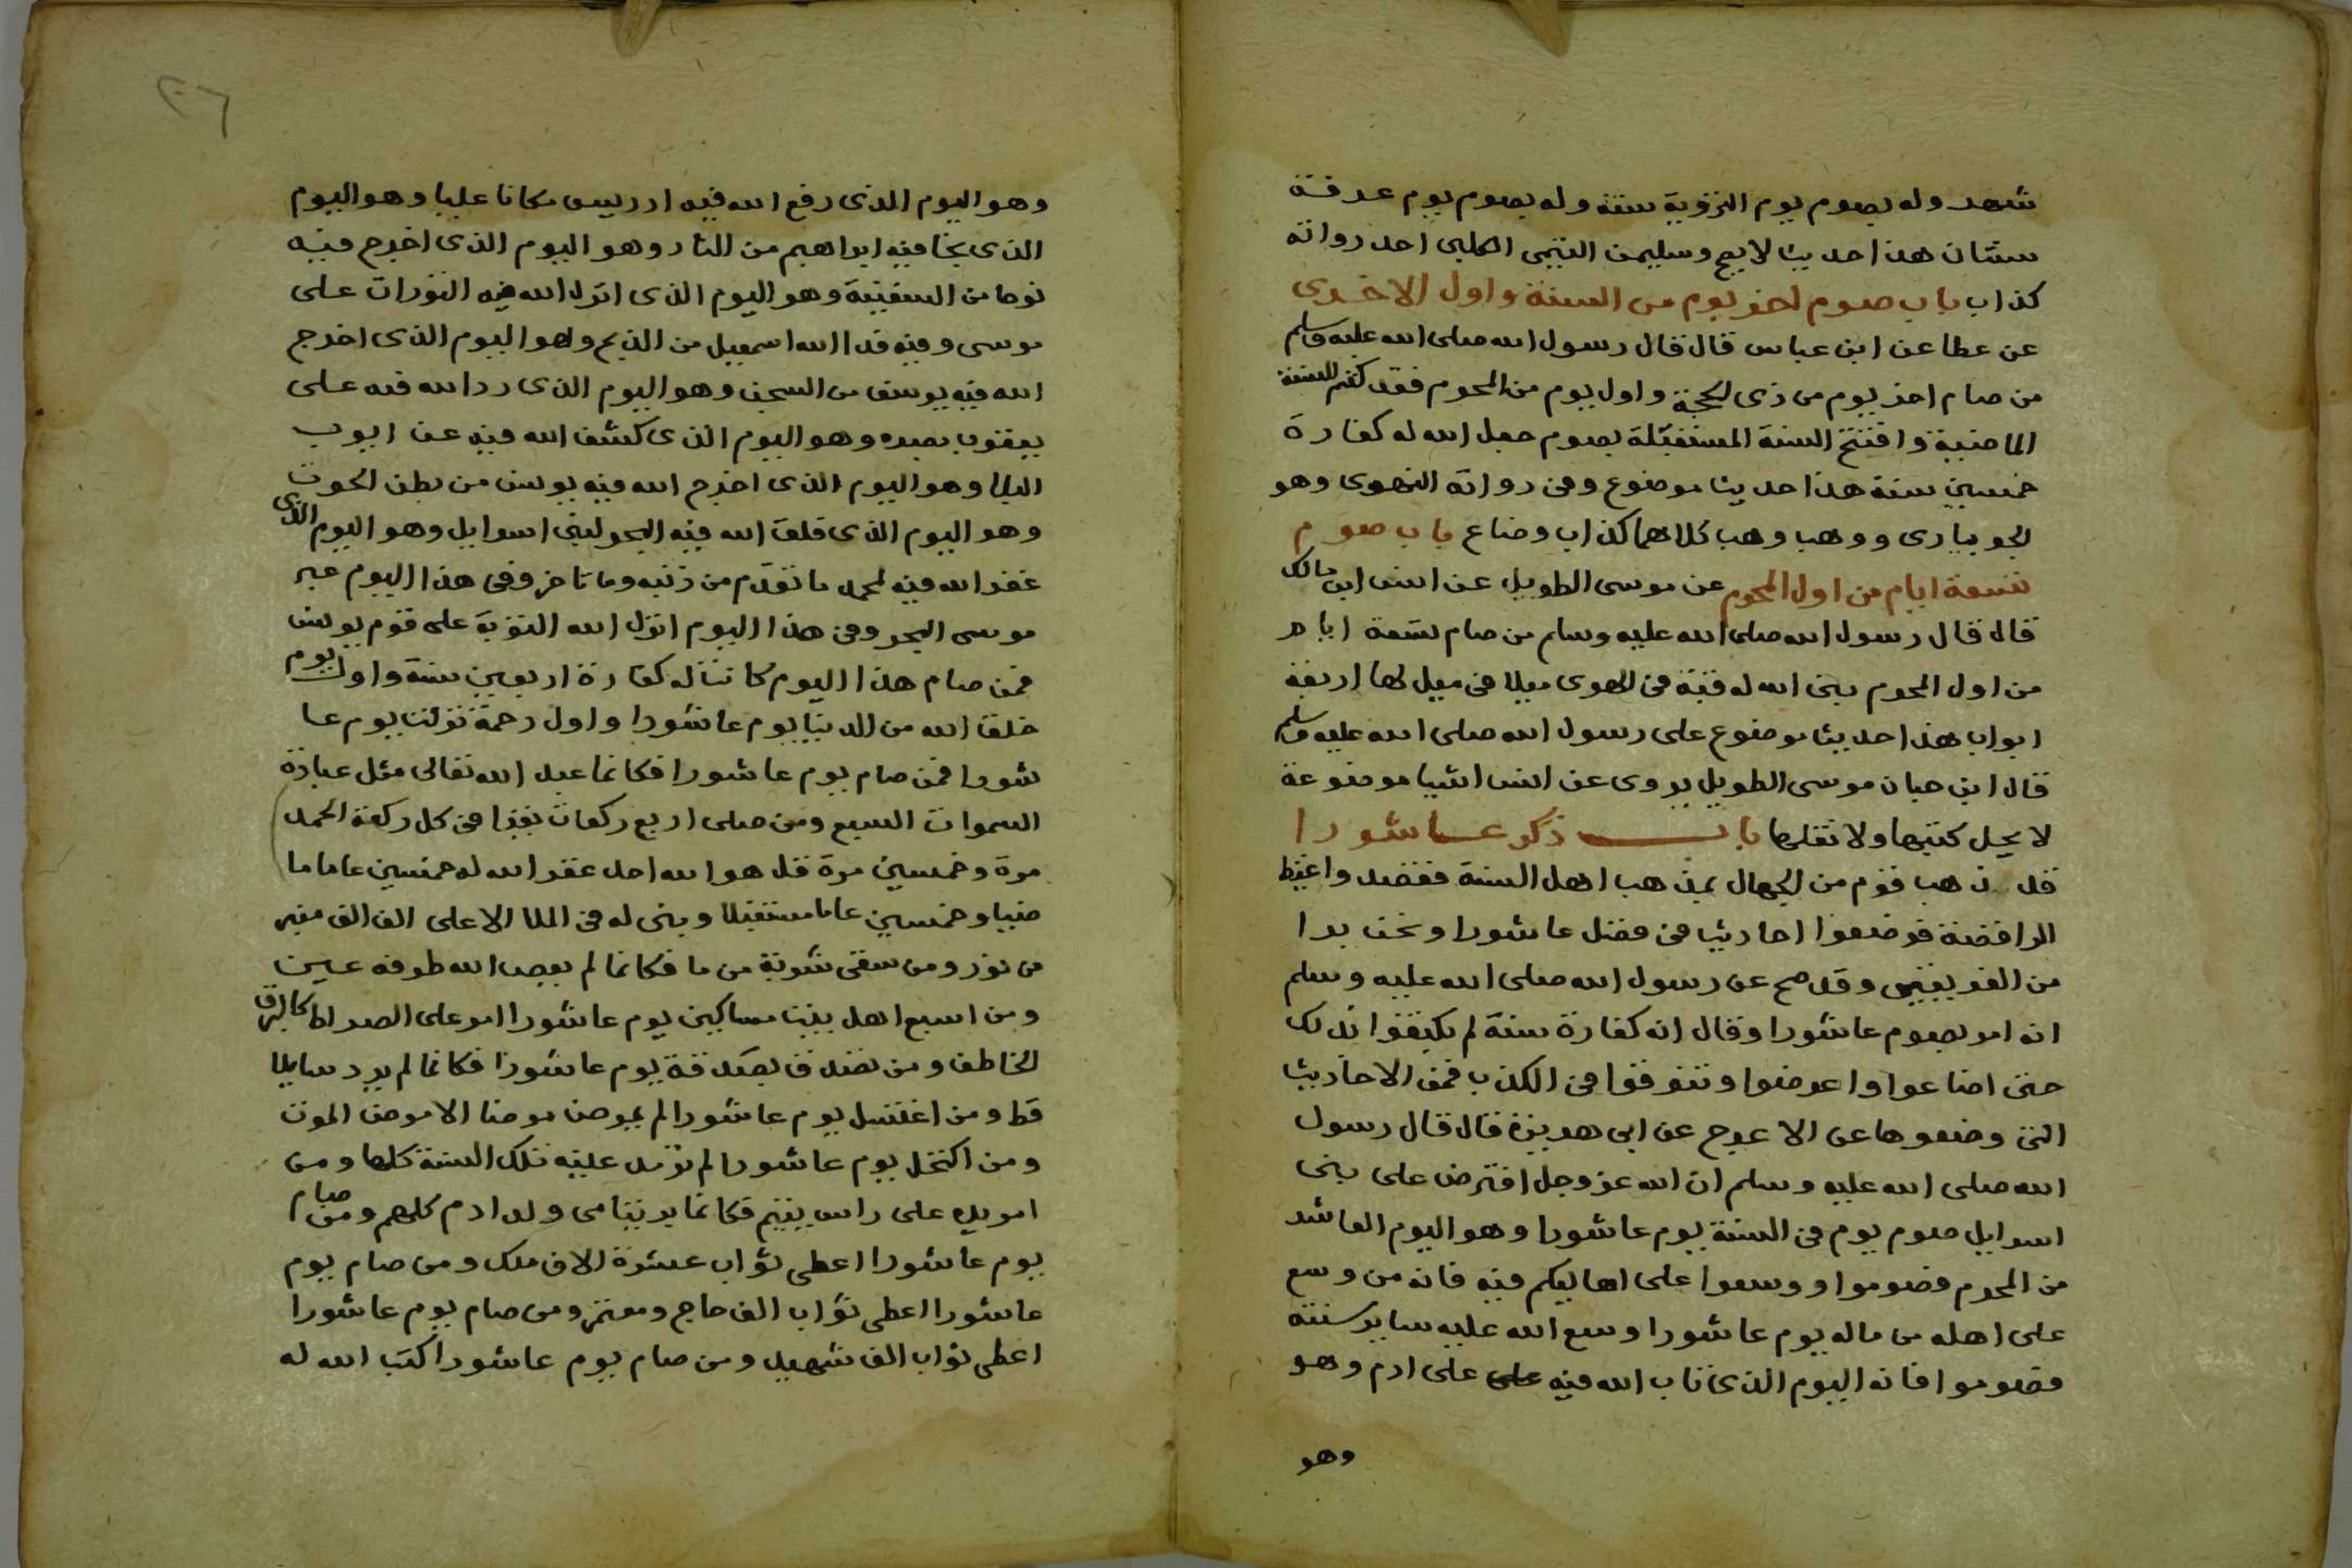 شهر وله بصوم يوم التروية سنة وله بصوم يوم عرفة
سنتان هذا حديث لا يصح وسليمن التيمى الكلبى احد رواته
كذاب باب صوم اخر يوم من السنة واول الاخرى
عن عطا عن ابن عباس قال قال رسول الله صلى الله عليه وسلم
من صام اخر يوم من ذى الحجة واول يوم من المحرم فقد ختم السنة
الماضية وافتتح السنة المستقبلة بصوم جعل الله له كفارة
خمسين سنة هذا حديث موضوع وفى رواته الهروى وهو
الجويبارى ووهب وهب كلاهما كذاب وضاع باب صوم
تسعة ايام من اول المحرم عن موسى الطويل عن انس ابن مالك
قال قال رسول الله صلى الله عليه وسلم من صام تسعة ايام
من اول المحرم بنى الله له قبة فى الهوى ميلا فى ميل لها اربعة
ابواب هذا حديث موضوع على رسول الله صلى الله عليه وسلم
قال ابن حبان موسى الطويل يروى عن انس اشيا موضوعة
لا يحل كتبها ولا نقلها باب ذكر عاشورا
قد ذهب قوم من الجهال بمذهب اهل السنة فقصد واغيظ
الرافضة فوضعوا احاديث فى فضل عاشورا ونحن برا
من الفريقين وقد صح عن رسول الله صلى الله عليه وسلم
انه امر بصوم عاشورا وقال انه كفارة سنة لم يكتفوا بذلك
حتى اضاعوا واعرضوا وتنوقوا فى الكذب فمن الاحاديث
التى وضعوها عن الاعرج عن ابى هريرة قال قال رسول
الله صلى الله عليه وسلم ان الله عز وجل افترض على بنى
اسرايل صوم يوم فى السنة يوم عاشورا وهو اليوم العاشر
من المحرم فصوموا ووسعوا على اهاليكم فيه فانه من وسع
على اهله من ماله يوم عاشورا وسع الله عليه ساير سنته
فصوموا فانه اليوم الذى تاب الله فيه على على ادم وهو
وهو
٢٦
وهو اليوم الذى رفع الله فيه ادريس مكانا عليا وهو اليوم
الذى نجا فيه ابراهيم من النار وهو اليوم الذى اخرج فيه
نوحا من السفينة وهو اليوم الذى انزل الله فيه التورات على
موسى وفيه فدا الله اسمعيل من الذبح وهو اليوم الذى اخرج
الله فيه يوسف من السجن وهو اليوم الذى رد الله فيه على
يعقوب بصره وهو اليوم الذى كشف الله فيه عن ايوب
البلا وهو اليوم الذى اخرج الله فيه يونس من بطن الحوت
وهو اليوم الذى فلق الله فيه البحر لبنى اسرايل وهو اليوم الذى
غفر الله فيه لمحمد ما تقدم من ذنبه وما تاخر وفى هذا اليوم عبر
موسى البحر وفى هذا اليوم انزل الله التوبة على قوم يونس
فمن صام هذا اليوم كانت له كفارة اربعين سنة واول يوم
خلق الله من الدنيا يوم عاشورا واول رحمة نزلت يوم عا
شورا فمن صام يوم عاشورا فكانما عبد الله تعالى مثل عبادة
السموات السبع ومن صلى اربع ركعات يقرا فى كل ركعة الحمد
مرة وخمسين مرة قل هو الله احد غفر الله له خمسين عاما ما
ضيا وخمسين عاما مستقبلا وبنى له فى الملا الاعلى الف الف منبر
من نور ومن سقى شربة من ما فكانما لم يعص الله طرفة عين
ومن اسبع اهل بيت مساكين يوم عاشورا امر على الصراط كالبرق
الخاطف ومن تصدق بصدقة يوم عاشورا فكانما لم يرد سايلا
قط ومن اغتسل يوم عاشورا لم يمرض مرضا الا مرض الموت
ومن اكتحل يوم عاشورا لم ترمد عليه تلك السنة كلها ومن
امر يده على راس يتيم فكانما بر يتامى ولد ادم كلهم ومن صام
يوم عاشورا اعطى ثواب عشرة الاف ملك ومن صام يوم
عاشورا اعطى ثواب الف حاج ومعتمر ومن صام يوم عاشورا
اعطى ثواب الف شهيد ومن صام يوم عاشورا كتب الله له